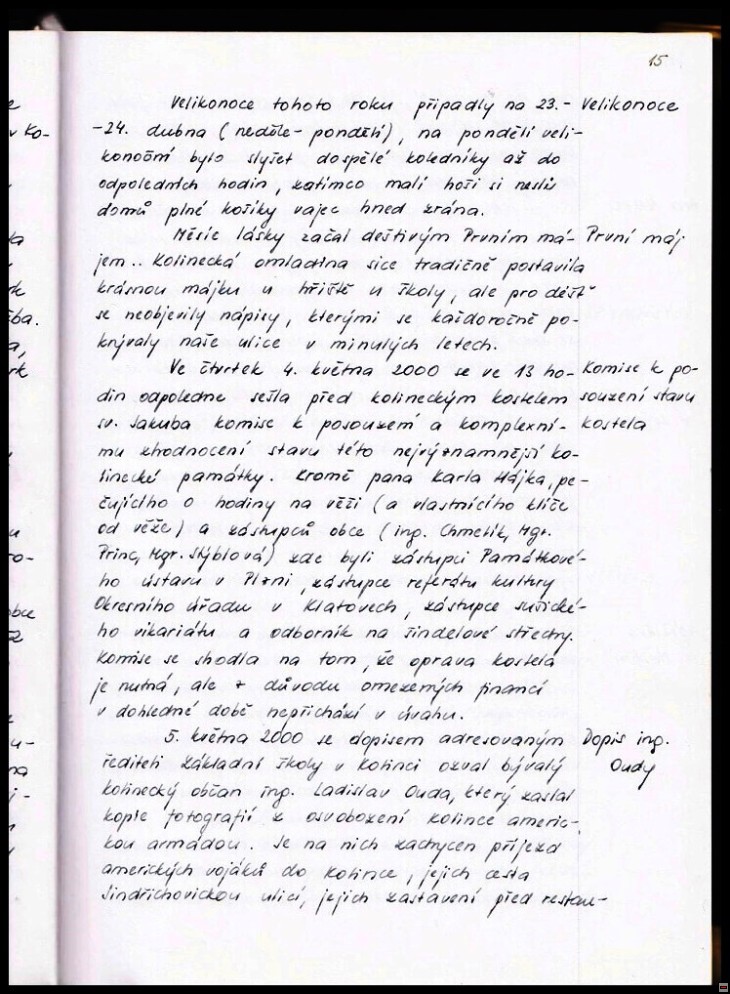 15
Velikonoce tohoto roku připadly na 23.- Velikonoce
-24. dubna (neděle - pondělí), na pondělí veli-
konoční bylo slyšet dospělé koledníky až do
odpoledních hodin, zatímco malí hoši si nesli
domů plné košíky vajec hned zrána.
Měsíc lásky začal deštivým Prvním má- První máj
jem.. Kolinecká omladina sice tradičně postavila
krásnou májku u hřiště u školy, ale pro déšť
se neobjevily nápisy, kterými se každoročně po-
krývaly naše ulice v minulých letech.
Ve čtvrtek 4. května 2000 se ve 13 ho- Komise k po-
din odpoledne sešla před kolineckým kostelem souzení stavu
sv. Jakuba komise k posouzení a komplexní- kostela
mu zhodnocení stavu této nejvýznamnější ko-
linecké památky. Kromě pana Karla Hájka, pe-
čujícího o hodiny na věži (a vlastnícího klíče
od věže) a zástupců obce (ing. Chmelík, Mgr.
Princ, Mgr. Stýblová) zde byli zástupci Památkové-
ho ústavu v Plzni, zástupce referátu kultury
Okresního úřadu v Klatovech, zástupce sušické-
ho vikariátu a odborník na šindelové střechy.
Komise se shodla na tom, že oprava kostela
je nutná, ale z důvodu omezených financí
v dohledné době nepřichází v úvahu.
5. května 2000 se dopisem adresovaným Dopis ing.
řediteli základní školy v Kolinci ozval bývalý Oudy
kolinecký občan ing. Ladislav Ouda, který zaslal
kopie fotografií z osvobození Kolince americ-
kou armádou. Je na nich zachycen příjezd
amerických vojáků do Kolince, jejich cesta
Jindřichovickou ulicí, jejich zastavení před restau-